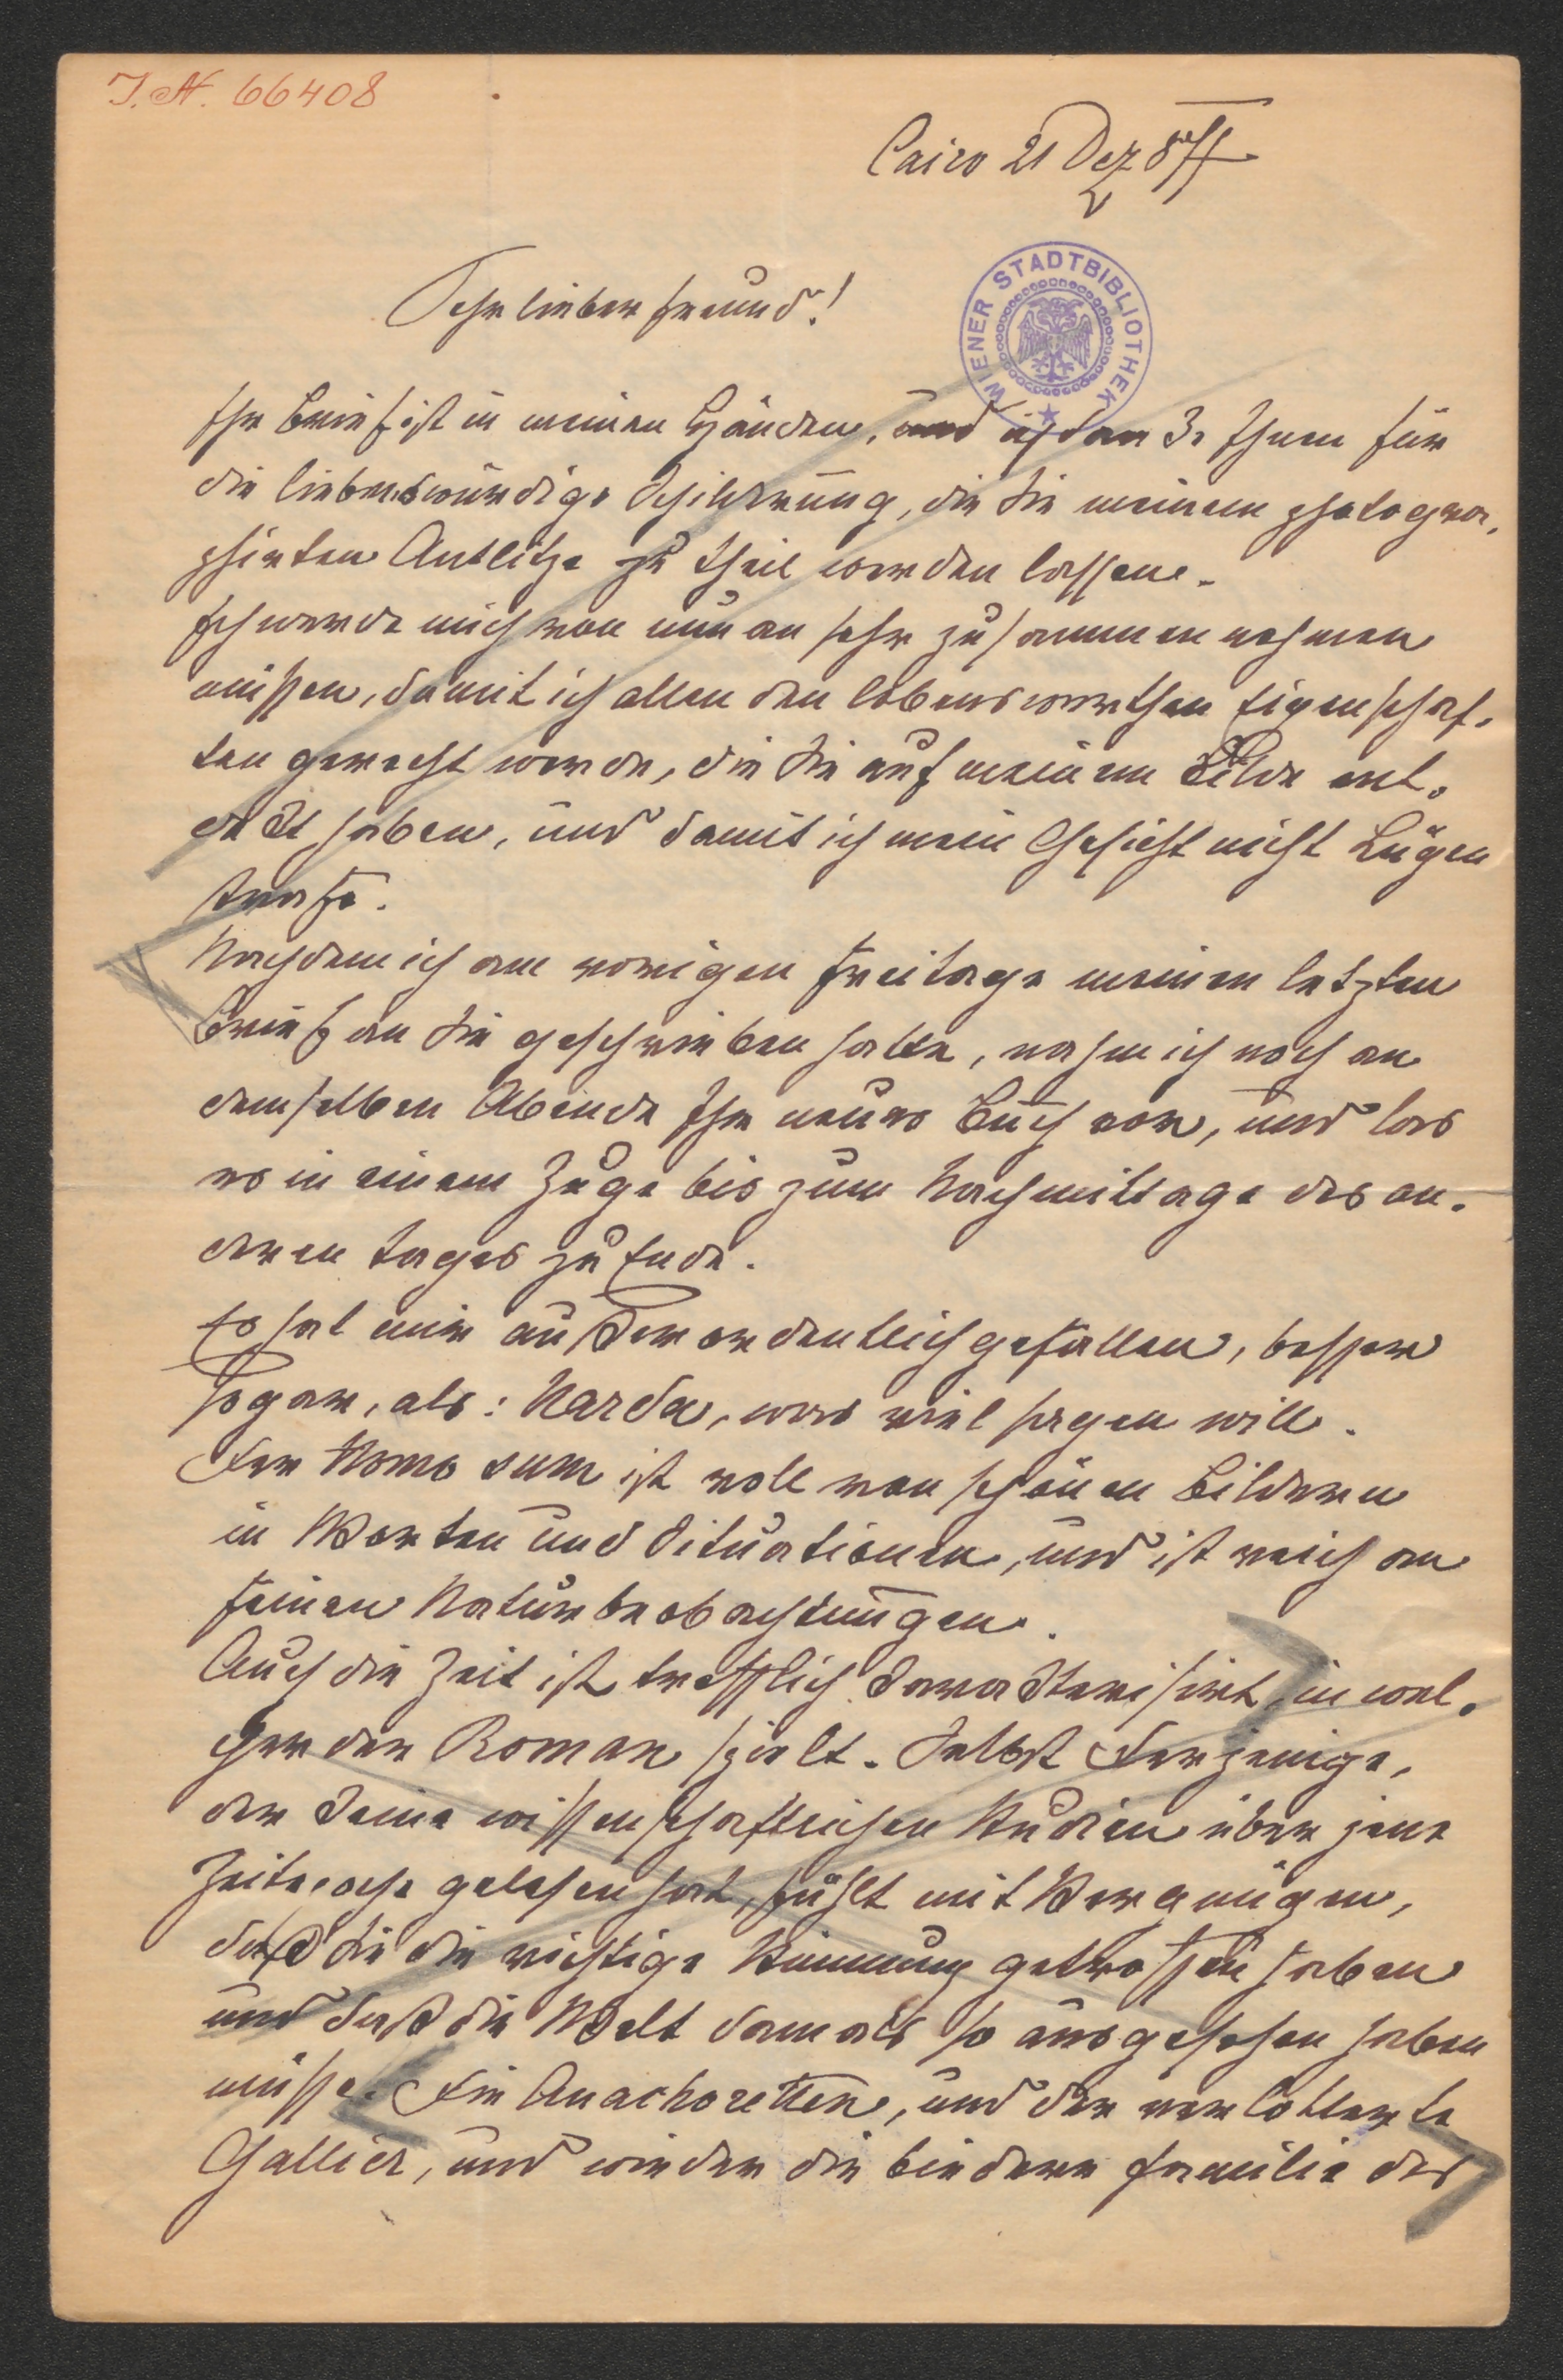 J. N. 66408
Cairo 21 Dez 877
WIENER STADTBIBLIOTHEK
Sehr lieber Freund!
Ihr Brief ist in meinen Händen, und ich danke Ihnen für
die liebenswürdige Schilderung, die Sie meinem photogra-
phirten Antlitze zu theil werden lassen.
Ich werde mich von nun an sehr zusammen nehmen
müssen, damit ich allen den lobenswerthen Eigenschaf-
ten gerecht werde, die Sie auf meinem Bilde ent-
deckt haben, und damit ich mein Gesicht nicht Lügen
strafe.
Nachdem ich am vorigen Freitage meinen letzten
Brief an Sie geschrieben hatte, nahm ich noch an
demselben Abende Ihr neues Buch vor, und las
es in einem Zuge bis zum Nachmittage des an-
deren Tages zu Ende.
Es hat mir außerordentlich gefallen, besser
sogar, als: Uarda, was viel sagen will.
Der Homo sum ist voll von schönen Bildern
in Worten und Situationen, und ist reich an
feinen Naturbeobachtungen.
Auch die Zeit ist trefflich karakterisirt, in wel-
cher der Roman spielt. Selbst Derjenige,
der keine wissenschaftlichen Studien über jene
Zeitepoche gelesen hat, fühlt mit Vergnügen,
daß Sie die richtige Stimmung getroffen haben
und daß die Welt damals so ausgesehen haben
müsse. Die Anachoretten, und der verlotterte
Gallier, und wieder die biedere Familie des